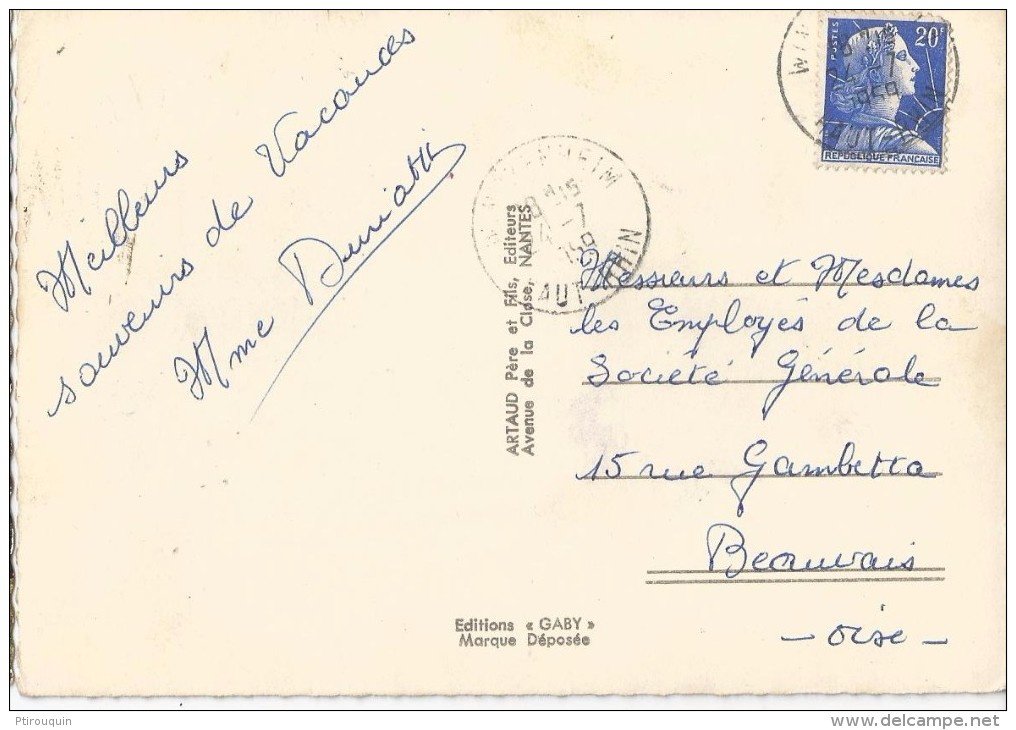 Meilleurs
souvenirs de Vacances
Mme
ARTAUD Père et Fils, Editeurs
Avenue de la Close, NANTES
POSTES
20F
1959
REPUBLIQUE FRANÇAISE
Messieurs et Mesdames
les Employés de la
Société Générale
15 rue Gambetta
Beauvais
- Oise -
Editions « GABY »
Marque Déposée
Ptirouquin
www.delcampe.net